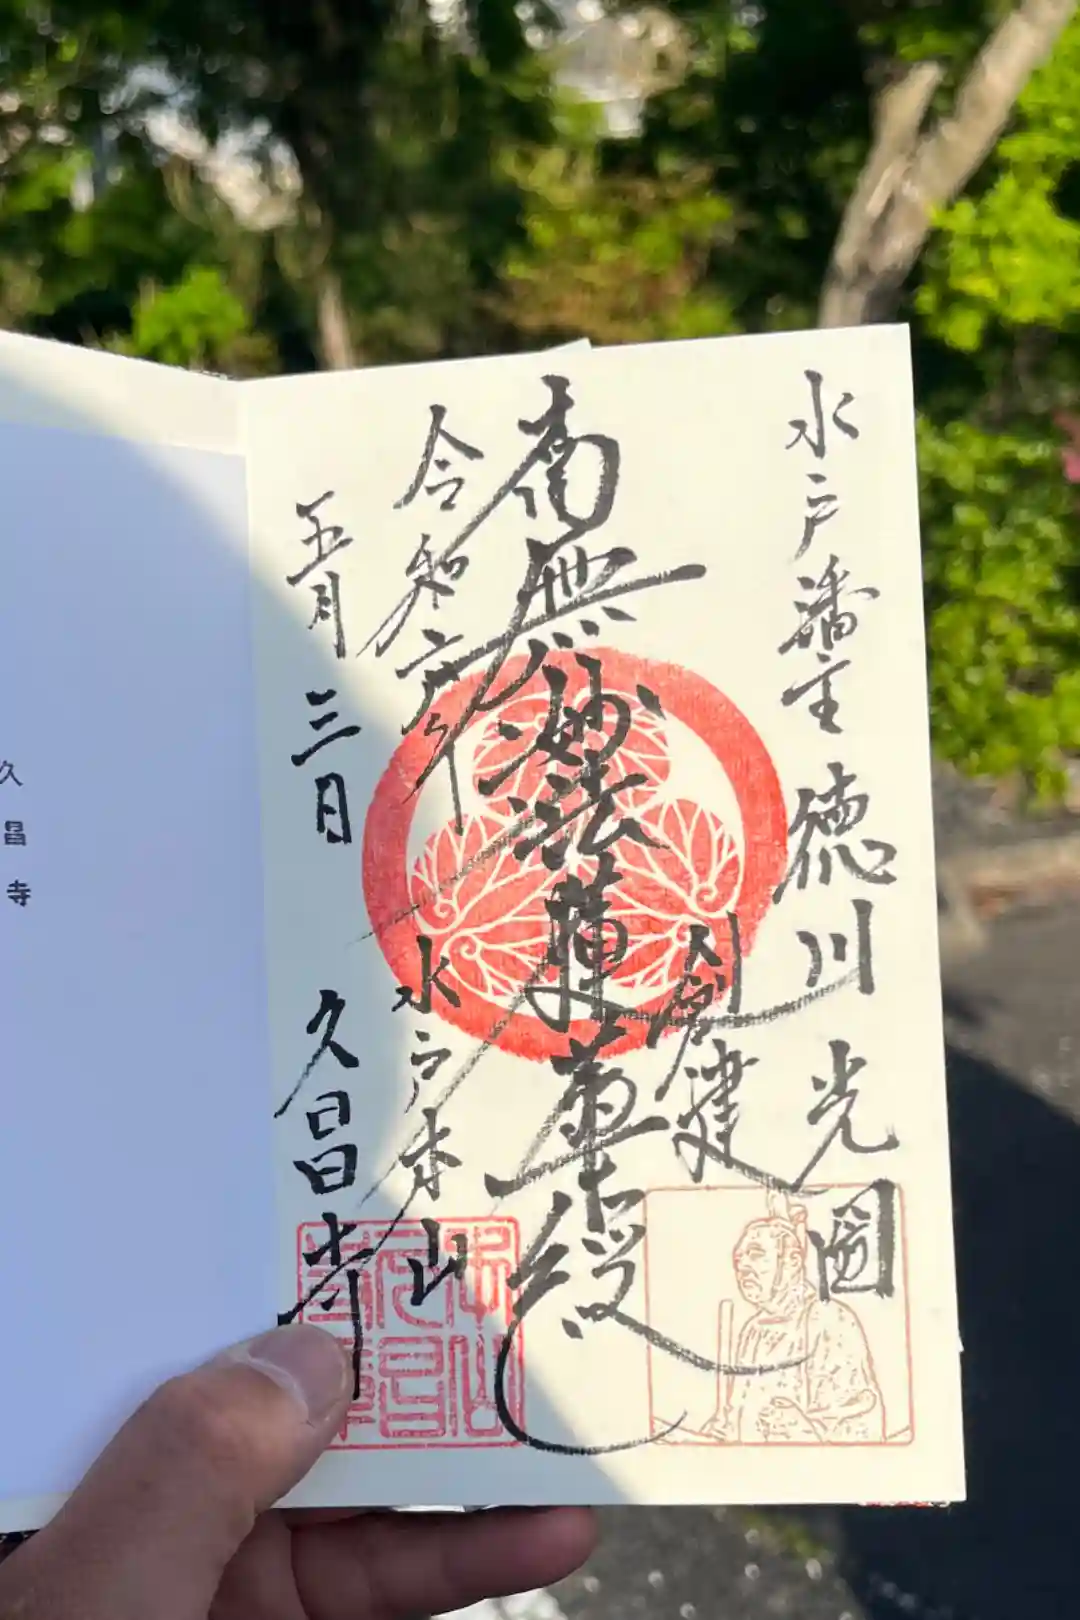 水戸藩主 徳川光圀
創建
南無妙法蓮華経
令和六年
水戸本山
五月三日
久昌寺
久昌寺